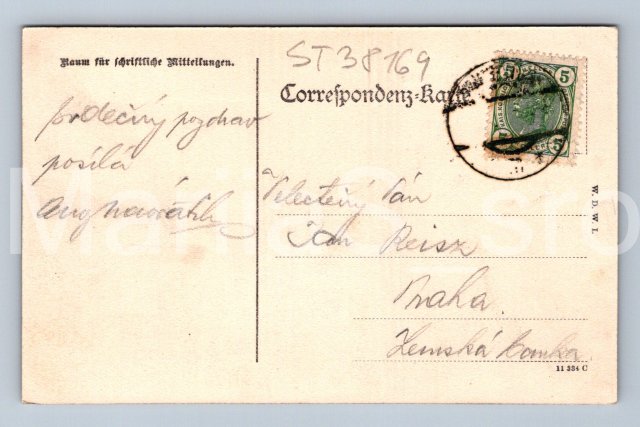 ST38169
Raum für schriftliche Mitteilungen.
Correspondenz-Karte
5 5
Srdečný pozdrav
posílá
Aug
Velectěný Pán
Jan Reisz
Praha
Zemská banka
W. D. W. I.
11 334 C